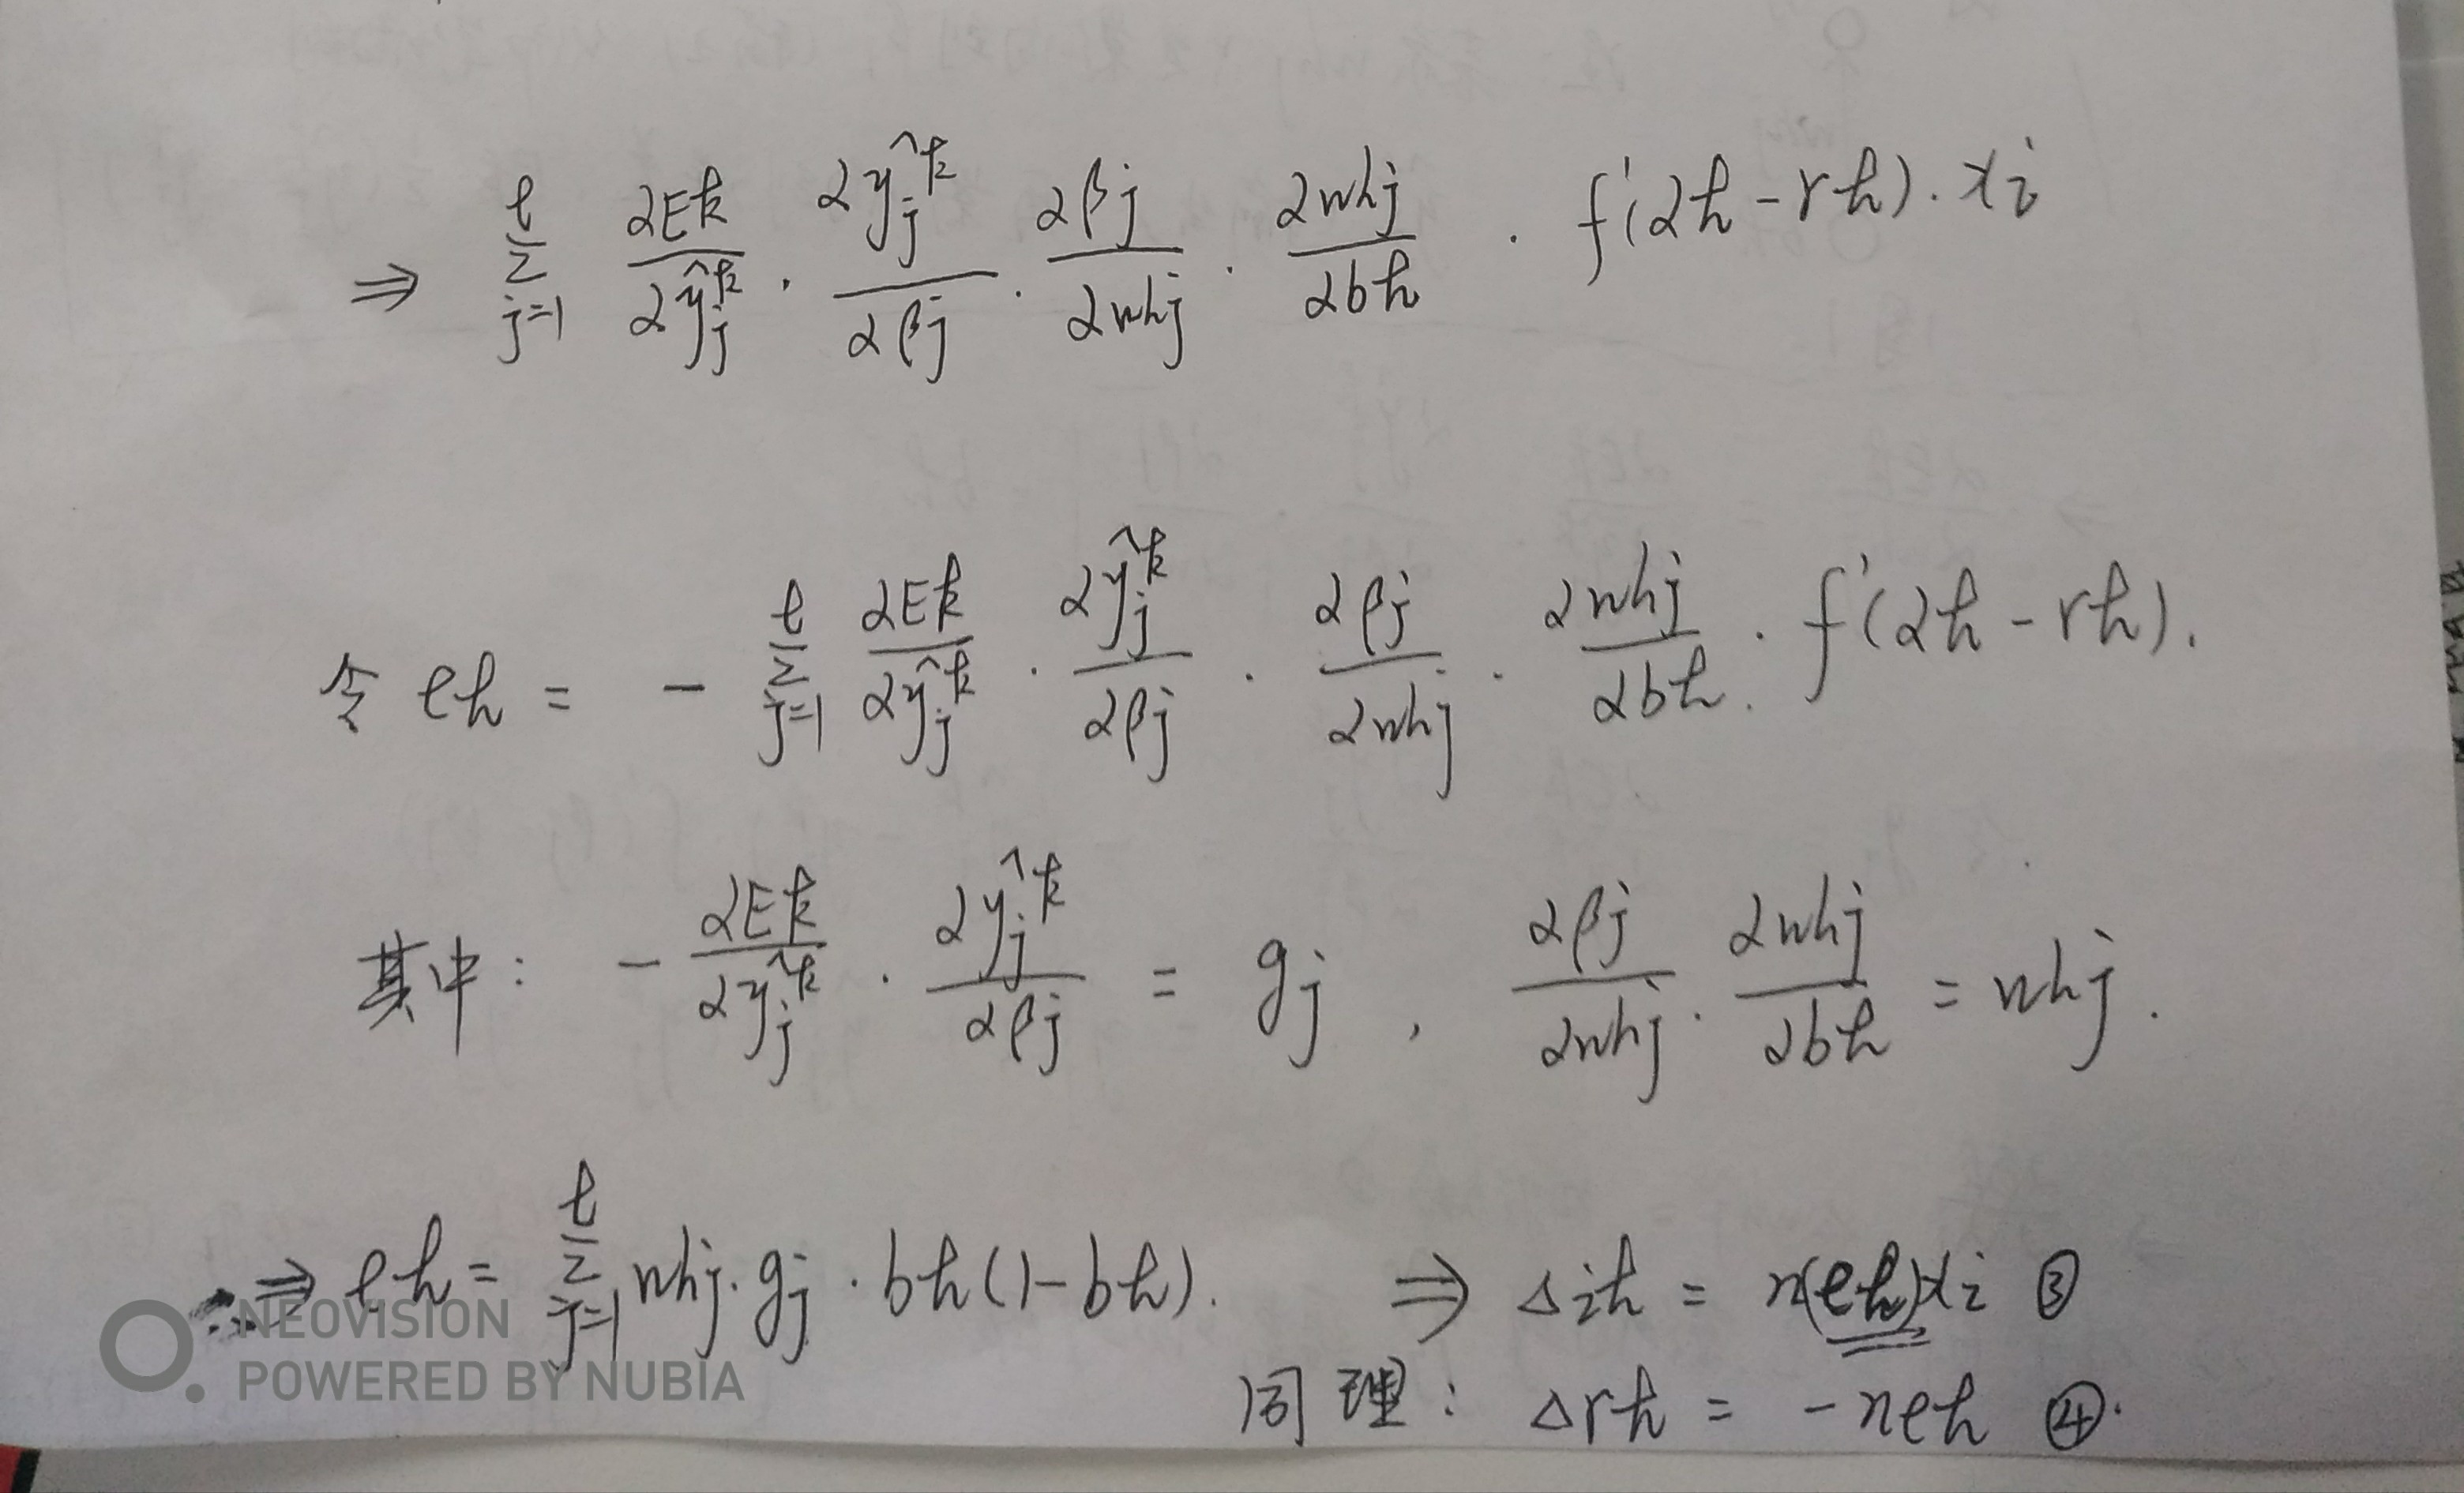 ⇒ \sum_{j=1}^{l} \frac{∂Ek}{∂\hat{y}_j^k} · \frac{∂\hat{y}_j^k}{∂βj} · \frac{∂βj}{∂whj} · \frac{∂whj}{∂bh} · f'(αh - rh) · xi
令 eh = - \sum_{j=1}^{l} \frac{∂Ek}{∂\hat{y}_j^k} · \frac{∂\hat{y}_j^k}{∂βj} · \frac{∂βj}{∂whj} · \frac{∂whj}{∂bh} · f'(αh - rh).
其中: - \frac{∂Ek}{∂\hat{y}_j^k} · \frac{∂\hat{y}_j^k}{∂βj} = gj , \frac{∂βj}{∂whj} · \frac{∂whj}{∂bh} = whj.
∴⇒ eh = \sum_{j=1}^{l} whj · gj · bh(1-bh). ⇒ Δih = η(eh)xi ③
同理: Δrh = -ηeh ④.
NEOVISION
POWERED BY NUBIA